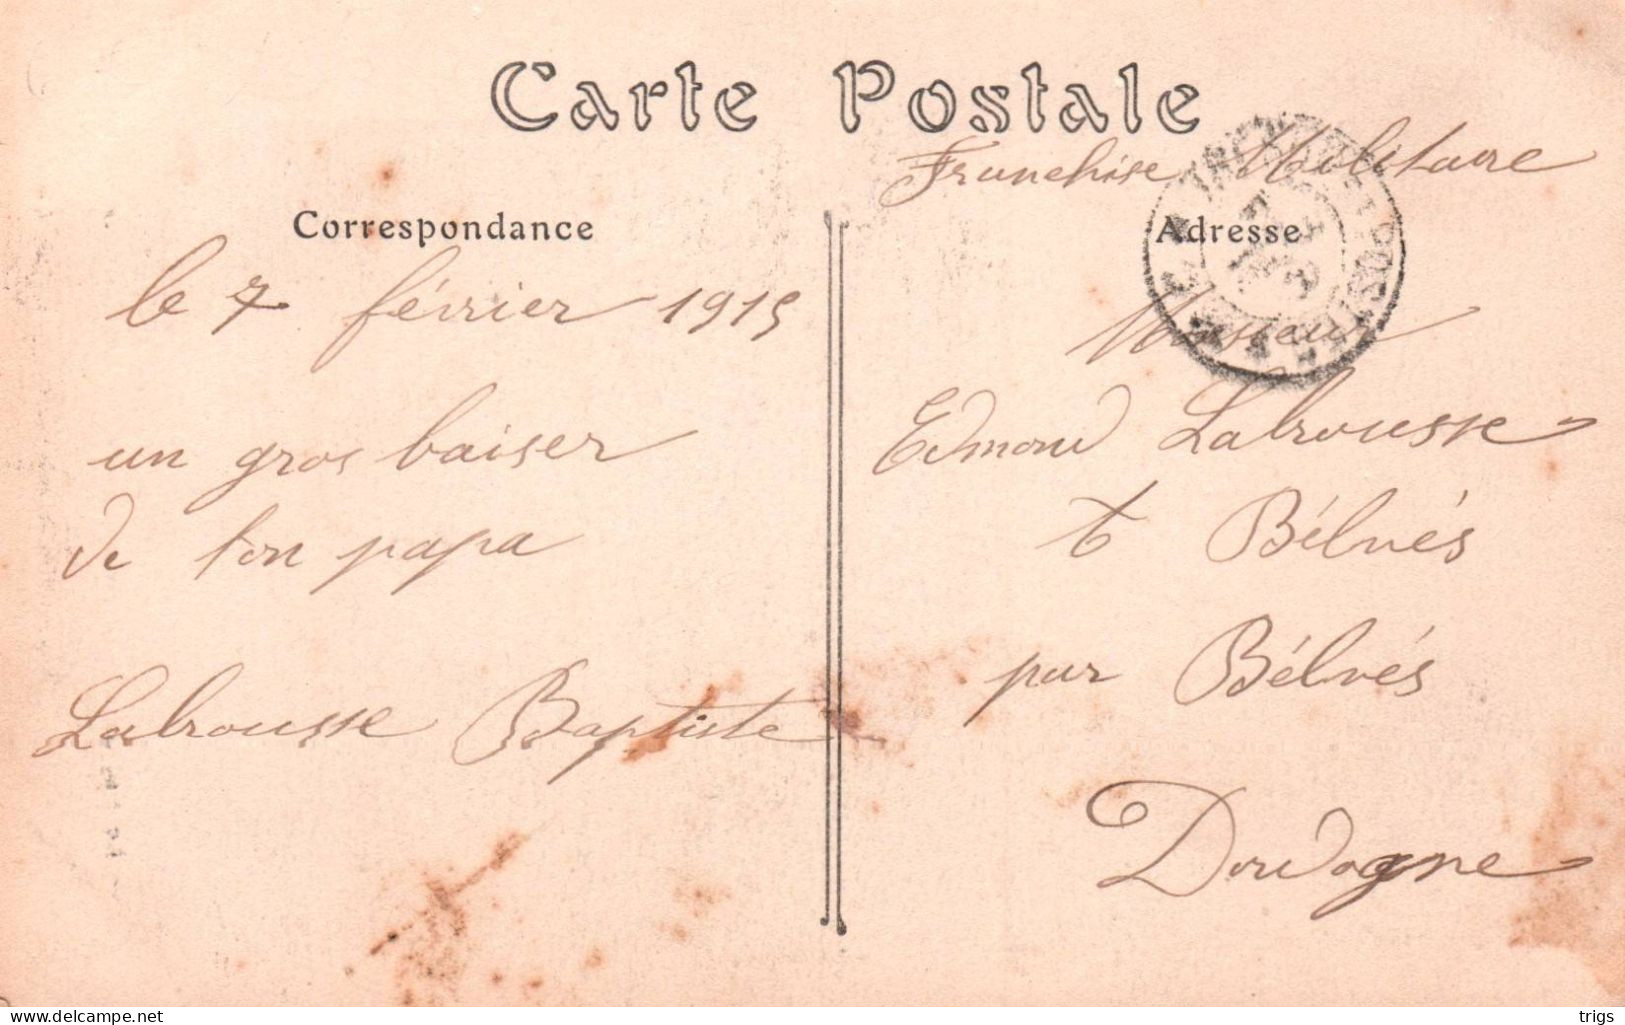 Carte Postale
Correspondance
le 7 février 1915
un gros baiser
de ton papa
Labrousse Baptiste
Franchise Militaire
Adresse
Monsieur
Edmond Labrousse
à Bélvés
par Bélvés
Dordogne
www.delcampe.net
trigs